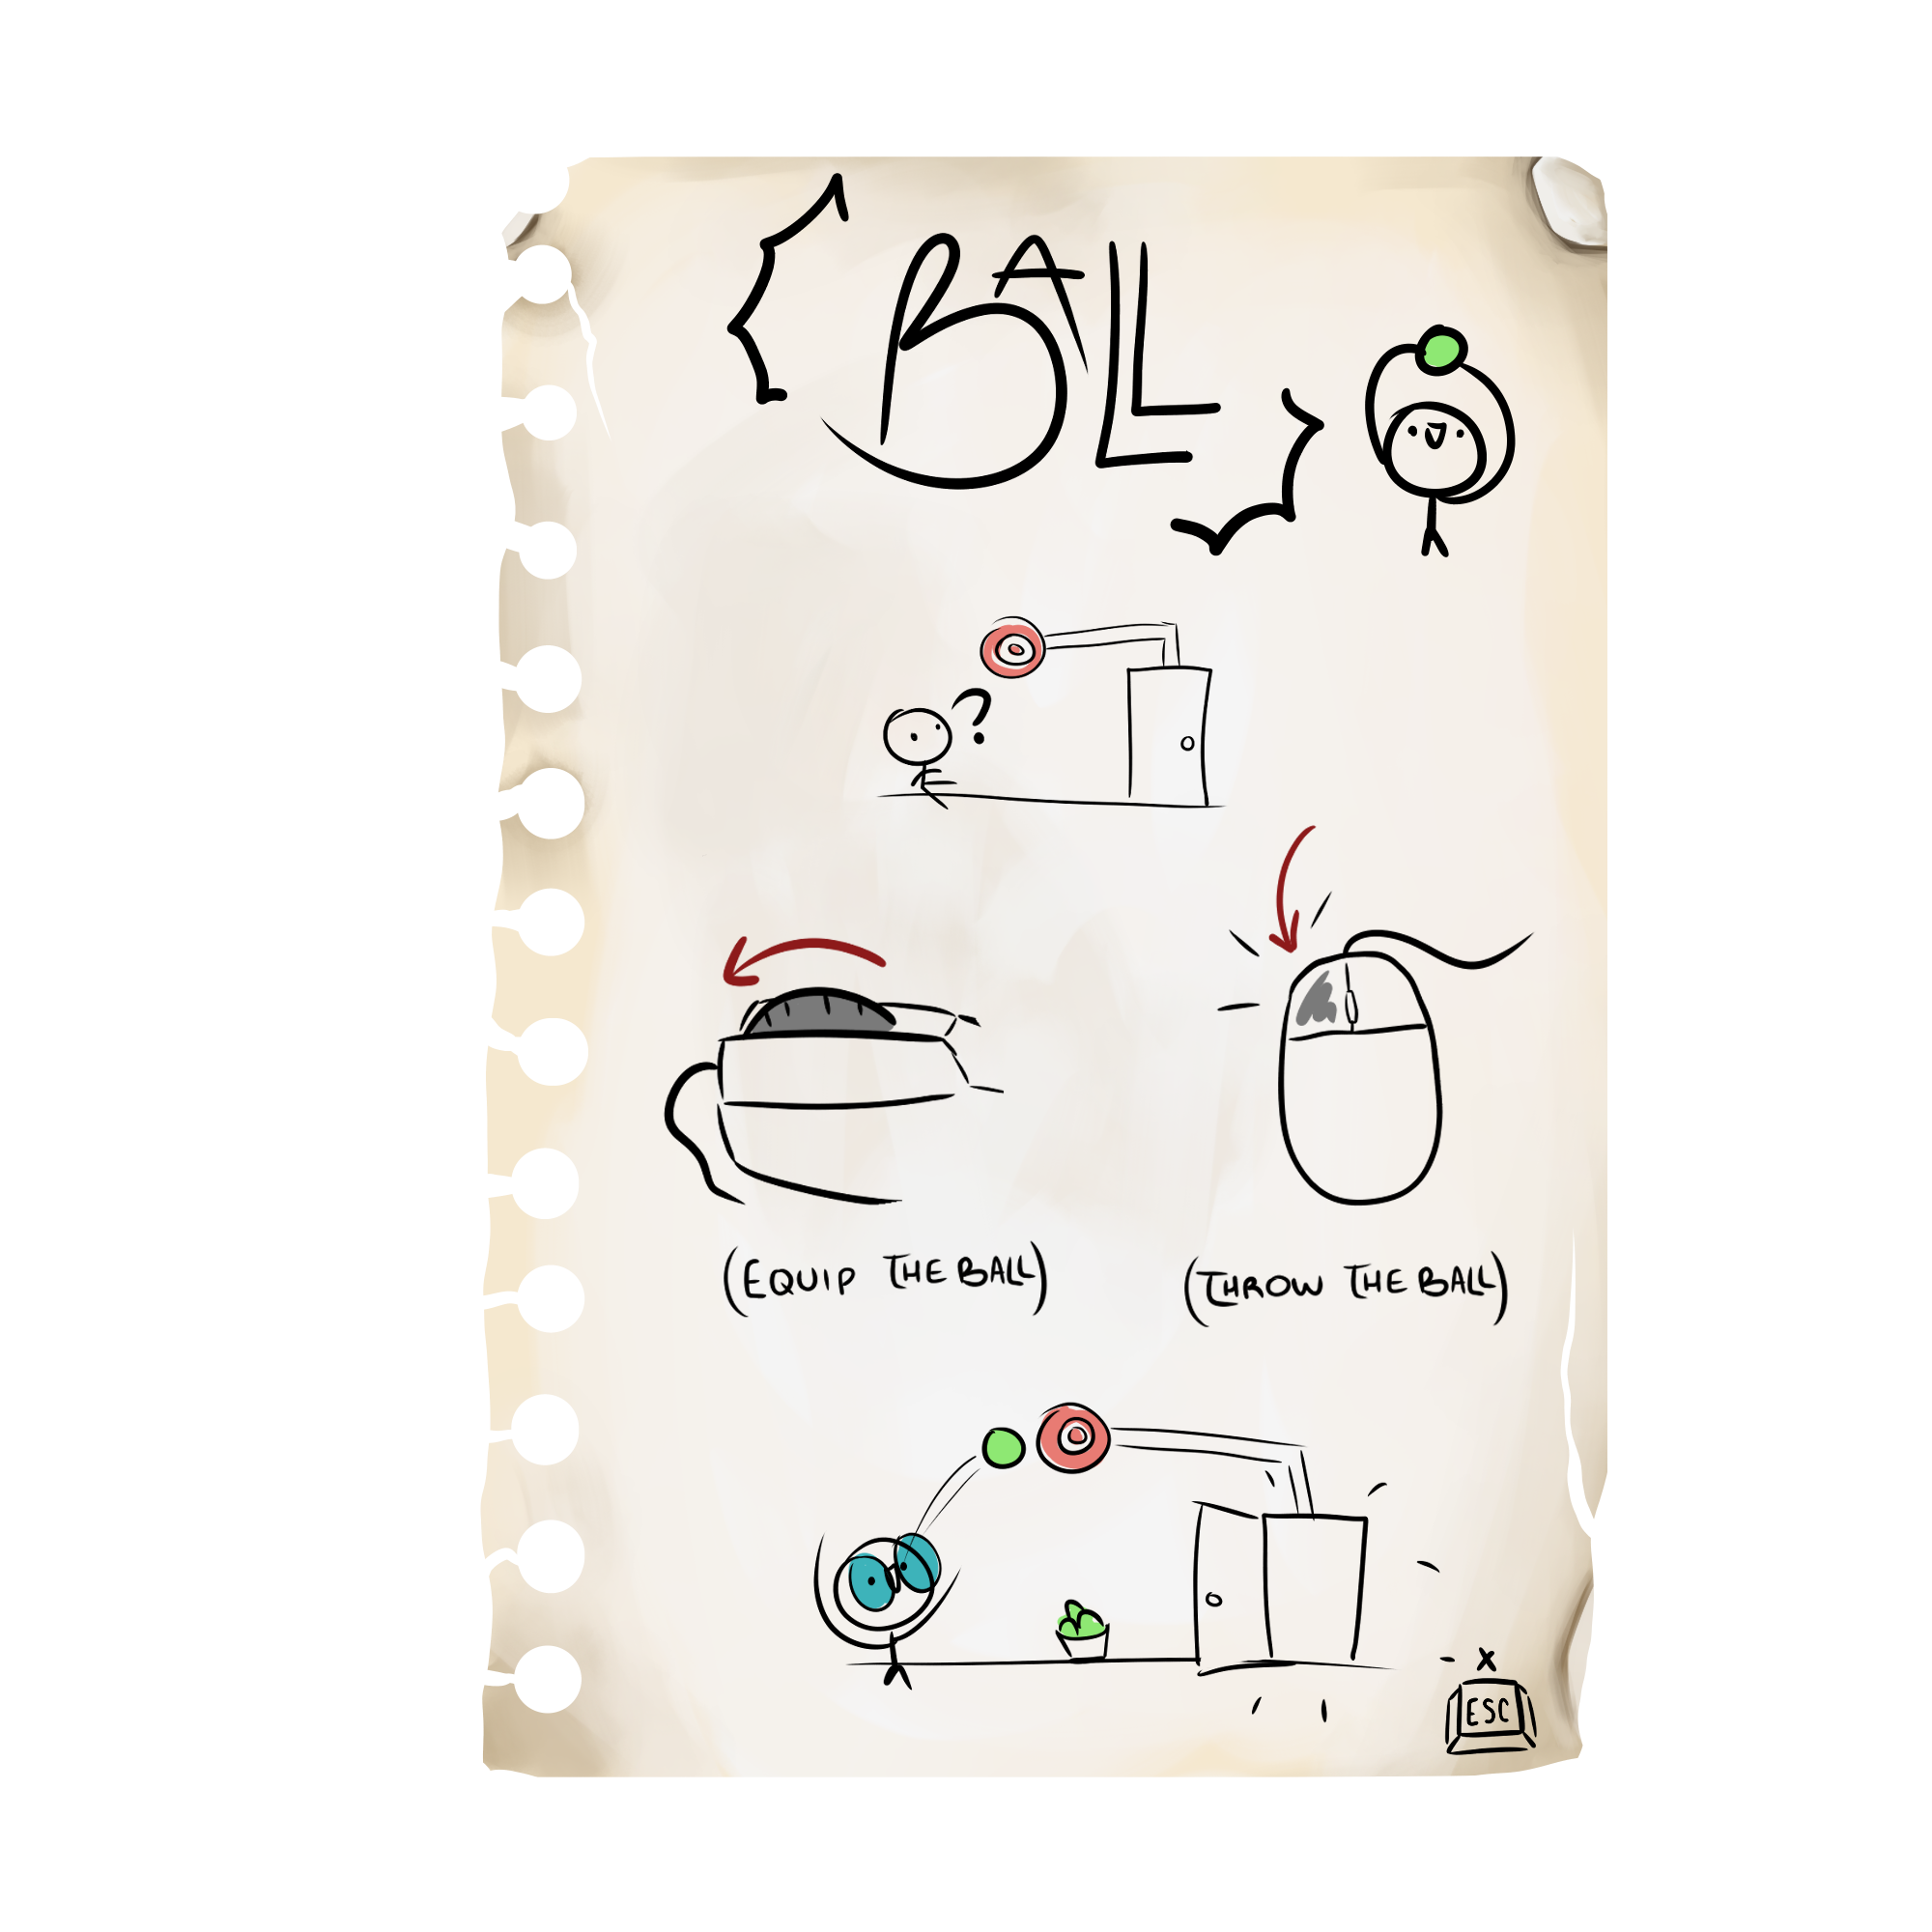 BALL
?
(EQUIP THE BALL)
(THROW THE BALL)
X
ESC